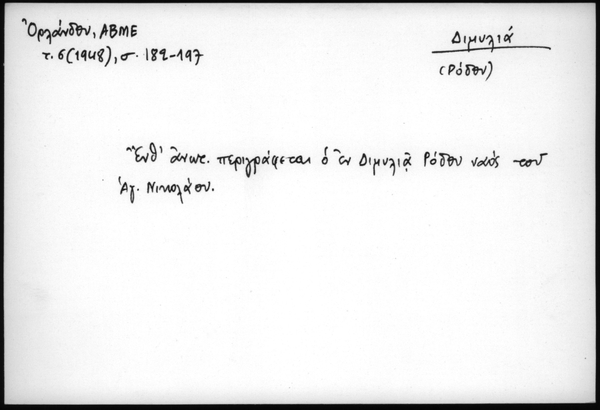 Ὀρλάνδου, ΑΒΜΕ
τ. 6 (1948), σ. 182-197
Διμυλιά
(Ρόδου)
Ἔνθ' ἀνωτ. περιγράφεται ὁ ἐν Διμυλιᾷ Ρόδου ναός τοῦ
Ἁγ. Νικολάου.